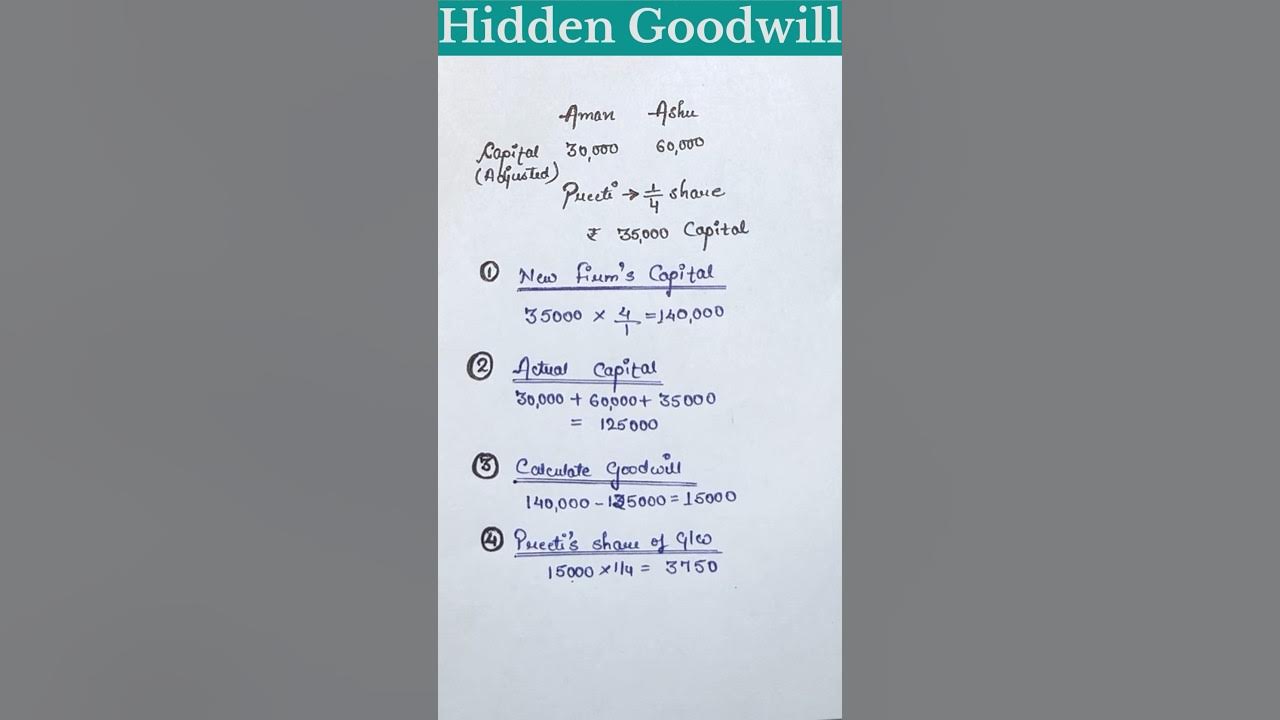 Hidden Goodwill
Aman Ashu
Capital 30,000 60,000
(Adjusted)
Preeti → 1/4 share
₹ 35,000 Capital
① New firm's Capital
35000 × 4/1 = 140,000
② Actual Capital
30,000 + 60,000 + 35000
= 125000
③ Calculate Goodwill
140,000 - 125000 = 15000
④ Preeti's share of G/w
15000 × 1/4 = 3750